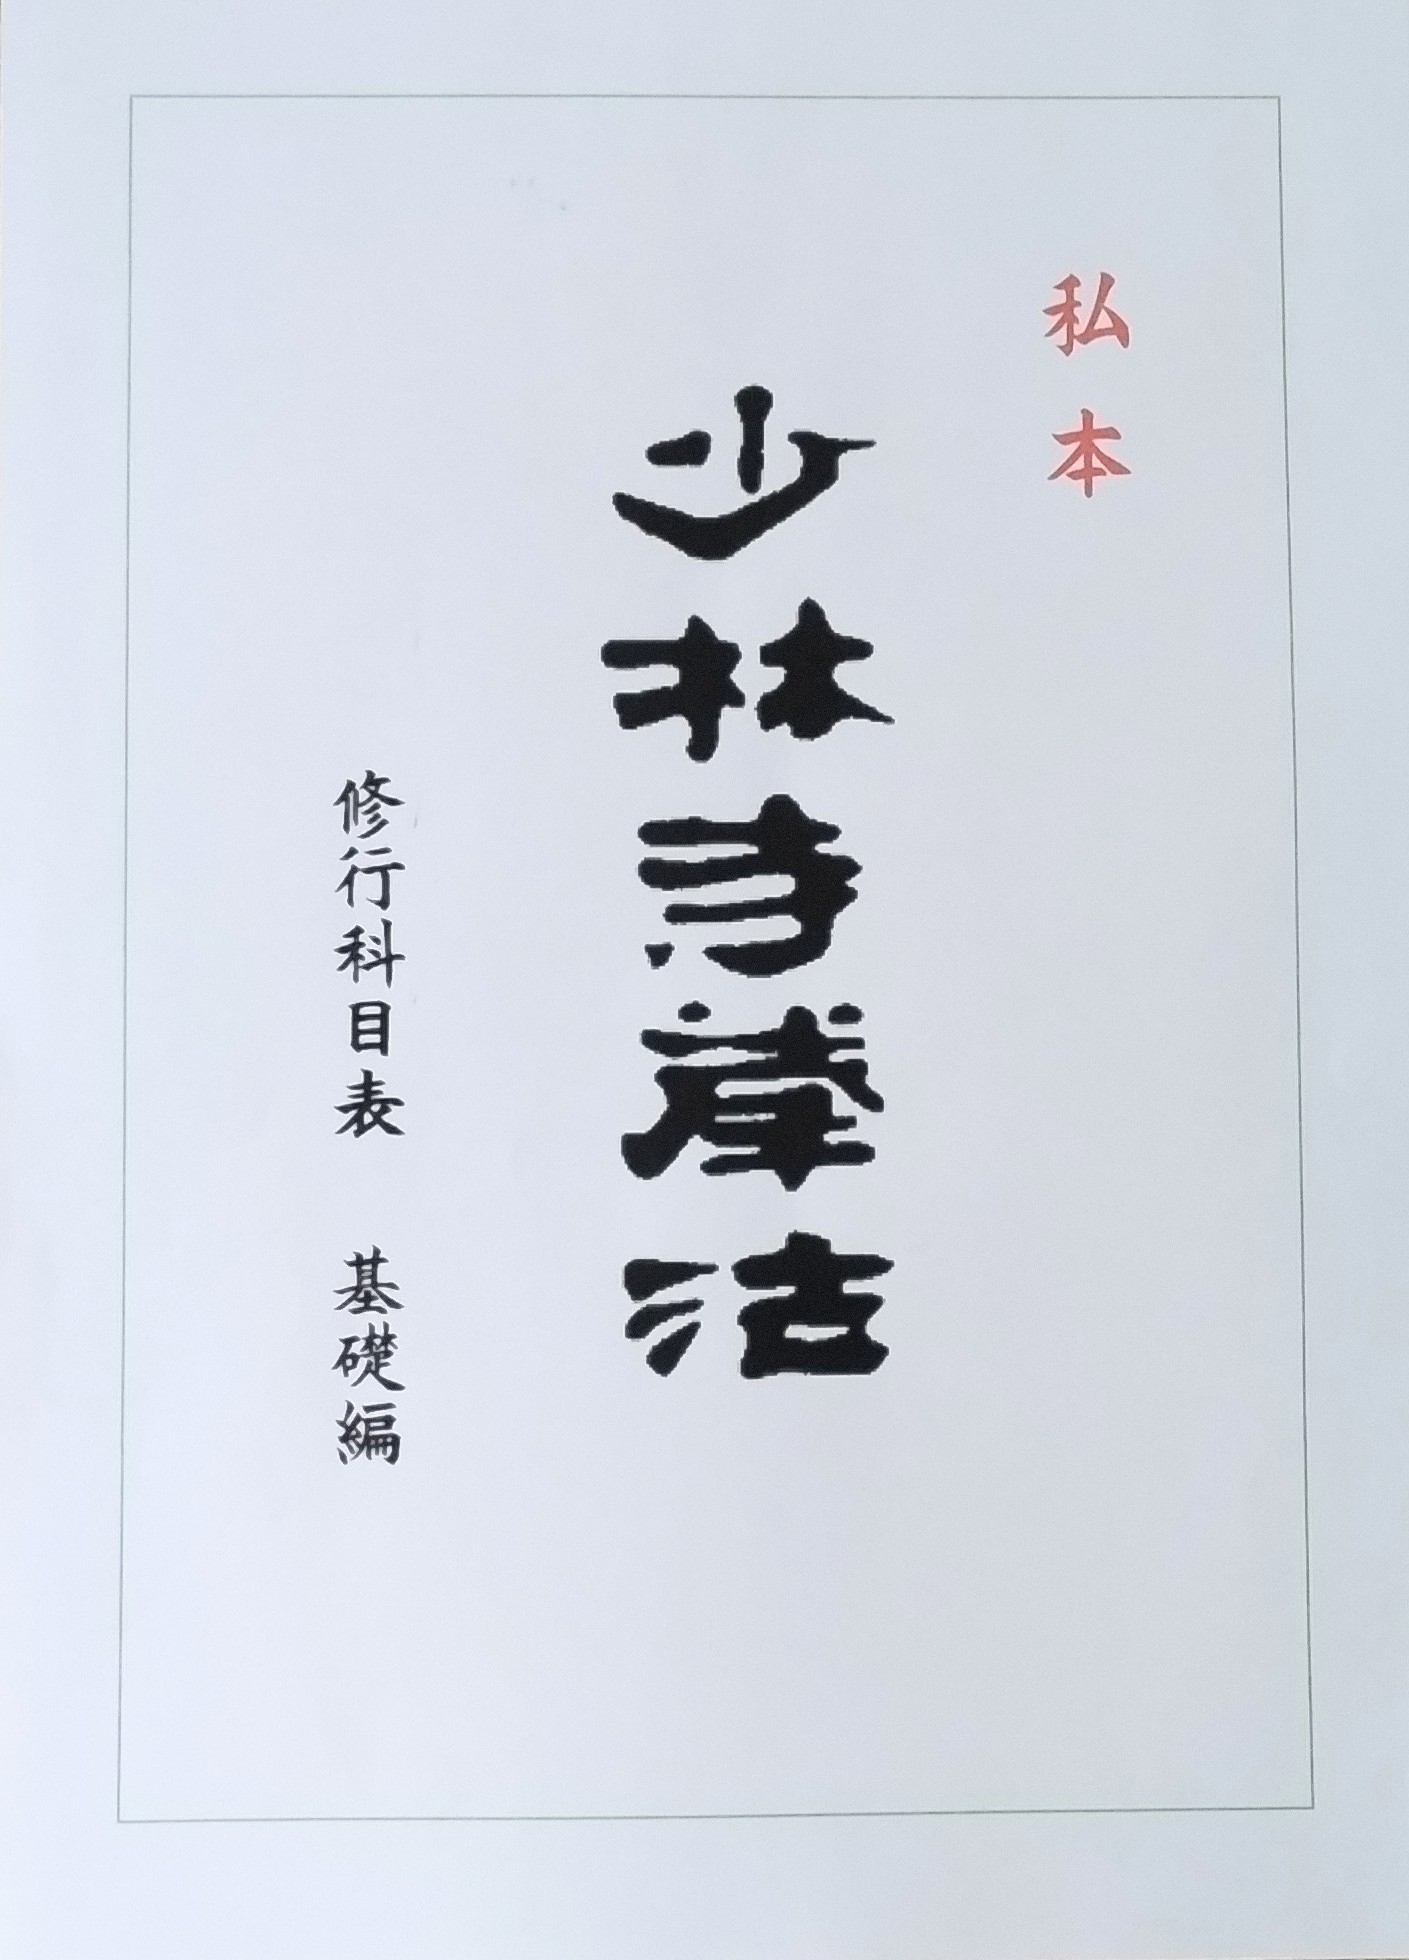 私本
少林寺拳法
修行科目表 基礎編